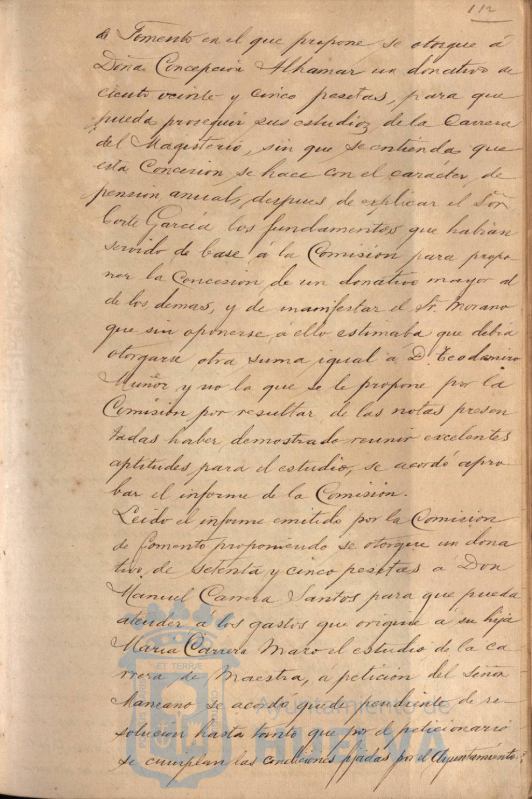 112
de Fomento en el que propone se otorgue á
Doña Concepción Alhamar un donativo de
ciento veinte y cinco pesetas, para que
pueda proseguir sus estudios de la Carrera
del Magisterio, sin que se entienda que
esta Concesion, se hace con el carácter de
pension anual, despues de explicar el Señor
Corte García los fundamentos que habian
servido de base á la Comisión para propo
ner la Concesion de un donativo mayor al
de los demas, y de manifestar el Sr. Morano
que sin oponerse á ello estimaba que debia
otorgarse otra suma igual á D. Teodomiro
Muñoz y no la que se le propone por la
Comisión por resultar de las notas presen
tadas haber demostrado reunir excelentes
aptitudes para el estudio, se acordó apro
bar el informe de la Comisión.
Leido el informe emitido por la Comision
de fomento proponiendo se otorgue un dona
tivo de setenta y cinco pesetas a Don
Manuel Carrera Santos para que pueda
atender á los gastos que origine á su hija
María Carrera Maro el estudio de la ca
rrera de Maestra, á petición del Señor
Manzano se acordó quede pendiente de re
solucion hasta tanto que por el peticionario
se cumplan las condiciones fijadas por el Ayuntamiento.
Ayuntamiento de
HUELVA